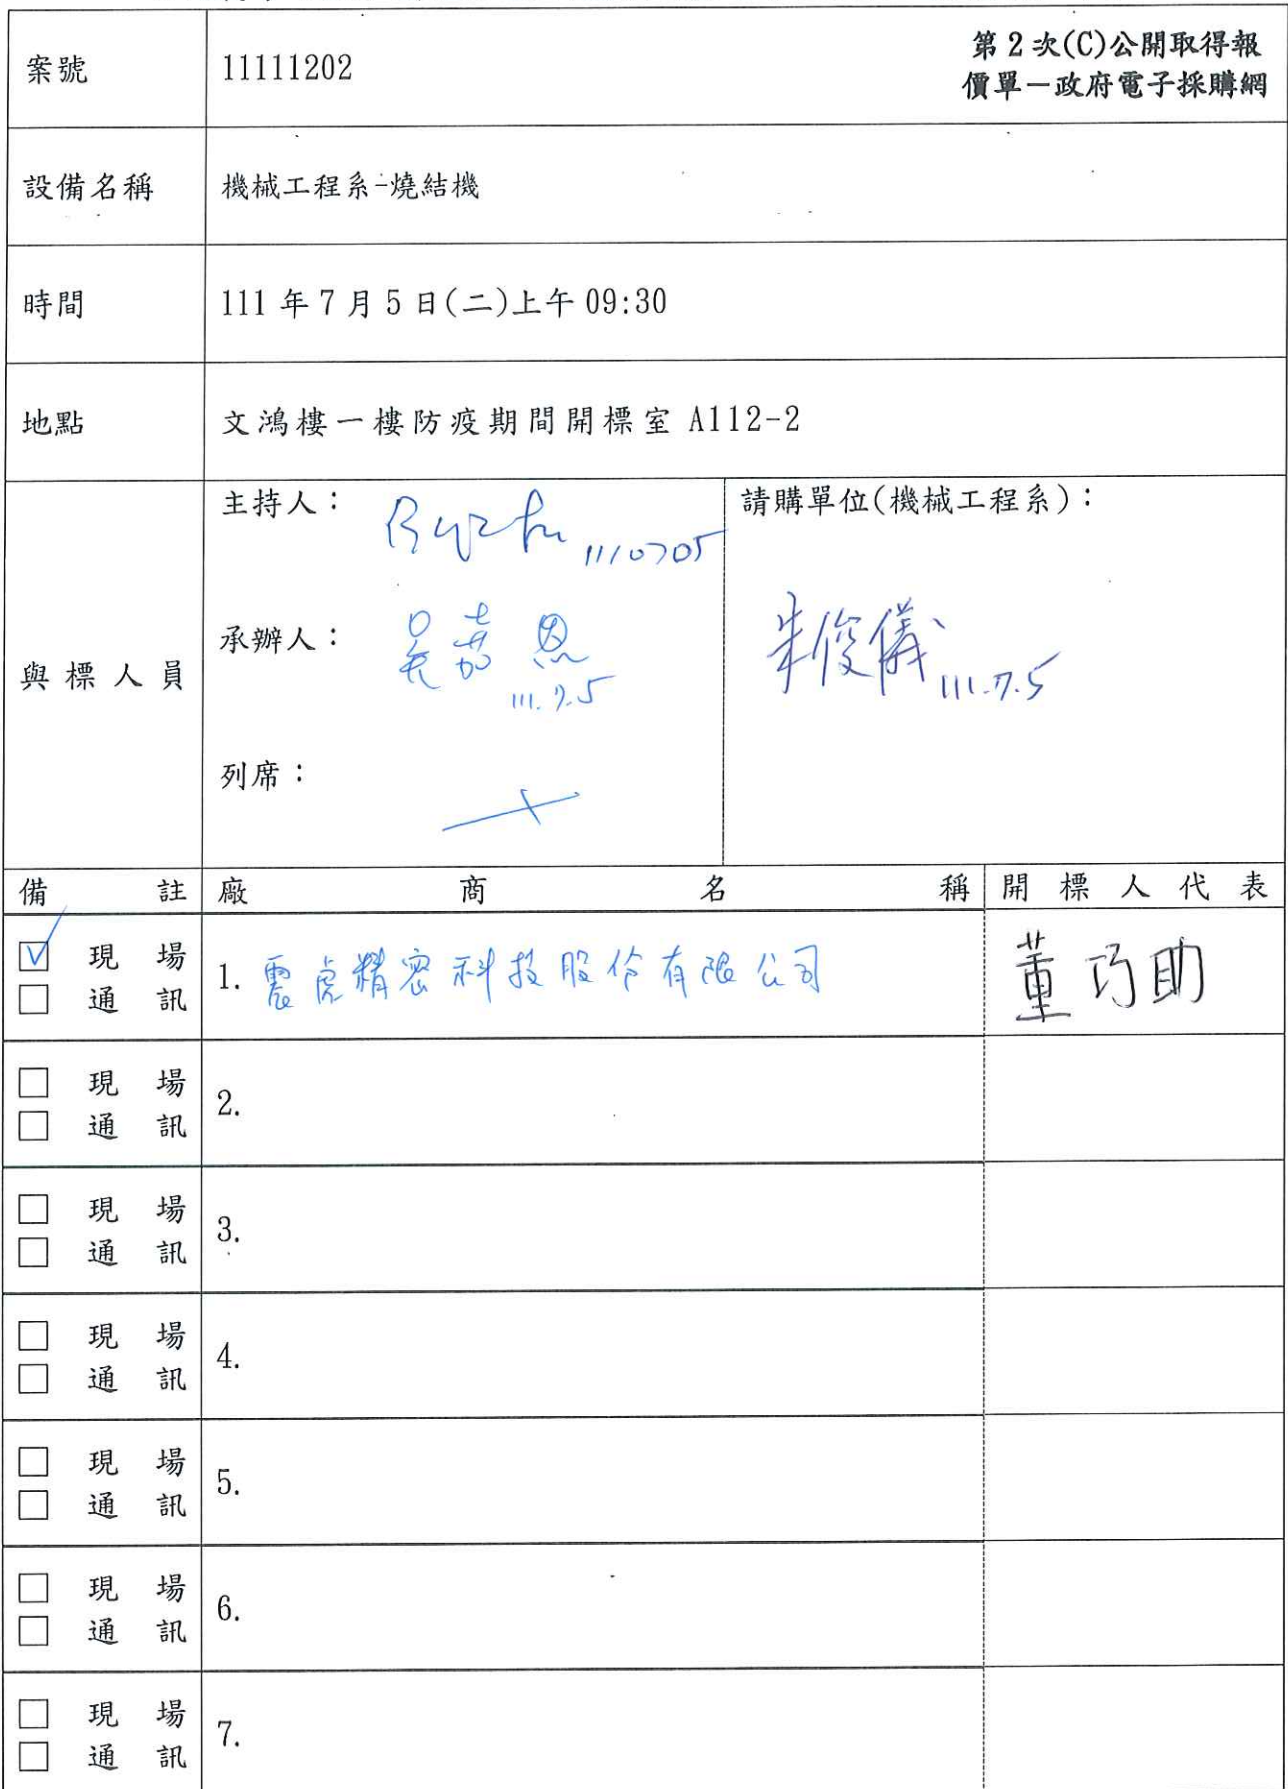 案號 11111202 第2次(C)公開取得報
價單－政府電子採購網
設備名稱 機械工程系-燒結機
時間 111年7月5日(二)上午09:30
地點 文鴻樓一樓防疫期間開標室 A112-2
與標人員
主持人： 1110705
承辦人： 吳嘉恩 111.7.5
列席：
請購單位(機械工程系)：
朱俊儀 111.7.5
備註 廠商名稱 開標人代表
☑ 現場
□ 通訊
1. 震虎精密科技股份有限公司 董巧助
□ 現場
□ 通訊
2.
□ 現場
□ 通訊
3.
□ 現場
□ 通訊
4.
□ 現場
□ 通訊
5.
□ 現場
□ 通訊
6.
□ 現場
□ 通訊
7.